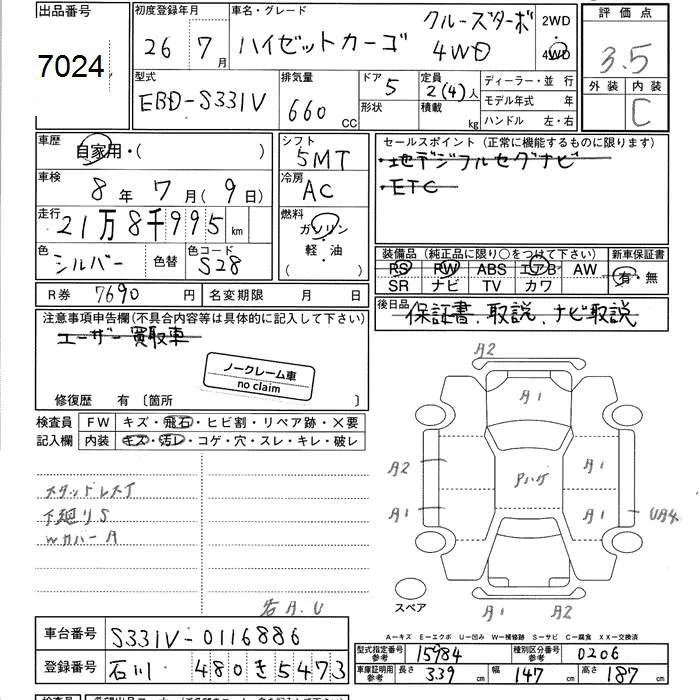 出品番号
7024
初度登録年月
26 7月
車名・グレード
ハイゼットカーゴ
クルーズターボ
4WD
2WD
4WD
評価点
3.5
外装 内装
C
型式
EBD-S331V
排気量
660 CC
ドア
5
形状
定員
2(4)人
積載
kg
ディーラー・並行
モデル年式 年
ハンドル 左・右
車歴
自家用・( )
シフト
5MT
車検
8年 7月(9日)
冷房
AC
走行
21万8千995km
燃料
ガソリン
軽・油
色
シルバー
色替
色コード
S28
R券 7690円
名変期限 月 日
セールスポイント (正常に機能するものに限ります)
・地デジフルセグナビ
・ETC
装備品 (純正品に限り○をつけて下さい)
PS PW ABS エアB AW
SR ナビ TV カワ
新車保証書
有・無
後日品
保証書、取説、ナビ取説
注意事項申告欄(不具合内容等は具体的に記入して下さい)
ユーザー買取車
ノークレーム車
no claim
修復歴 有 〔箇所 〕
検査員
記入欄
FW キズ・飛石・ヒビ割・リペア跡・×要
内装 キズ・汚レ・コゲ・穴・スレ・キレ・破レ
スタッドレスT
下廻りS
Wカバー A
名A.U
A2
A1
A2
A1
A1
A1
UA4
A1
A2
スペア
A-キズ E-エクボ U-凹み W-補修跡 S-サビ C-腐食 XX-交換済
車台番号
S331V-0116886
登録番号
石川 480 き 5473
型式指定番号
参考
15984
種別区分番号
参考
0206
車庫証明用
参考
長さ
339 cm
幅
147 cm
高さ
187 cm